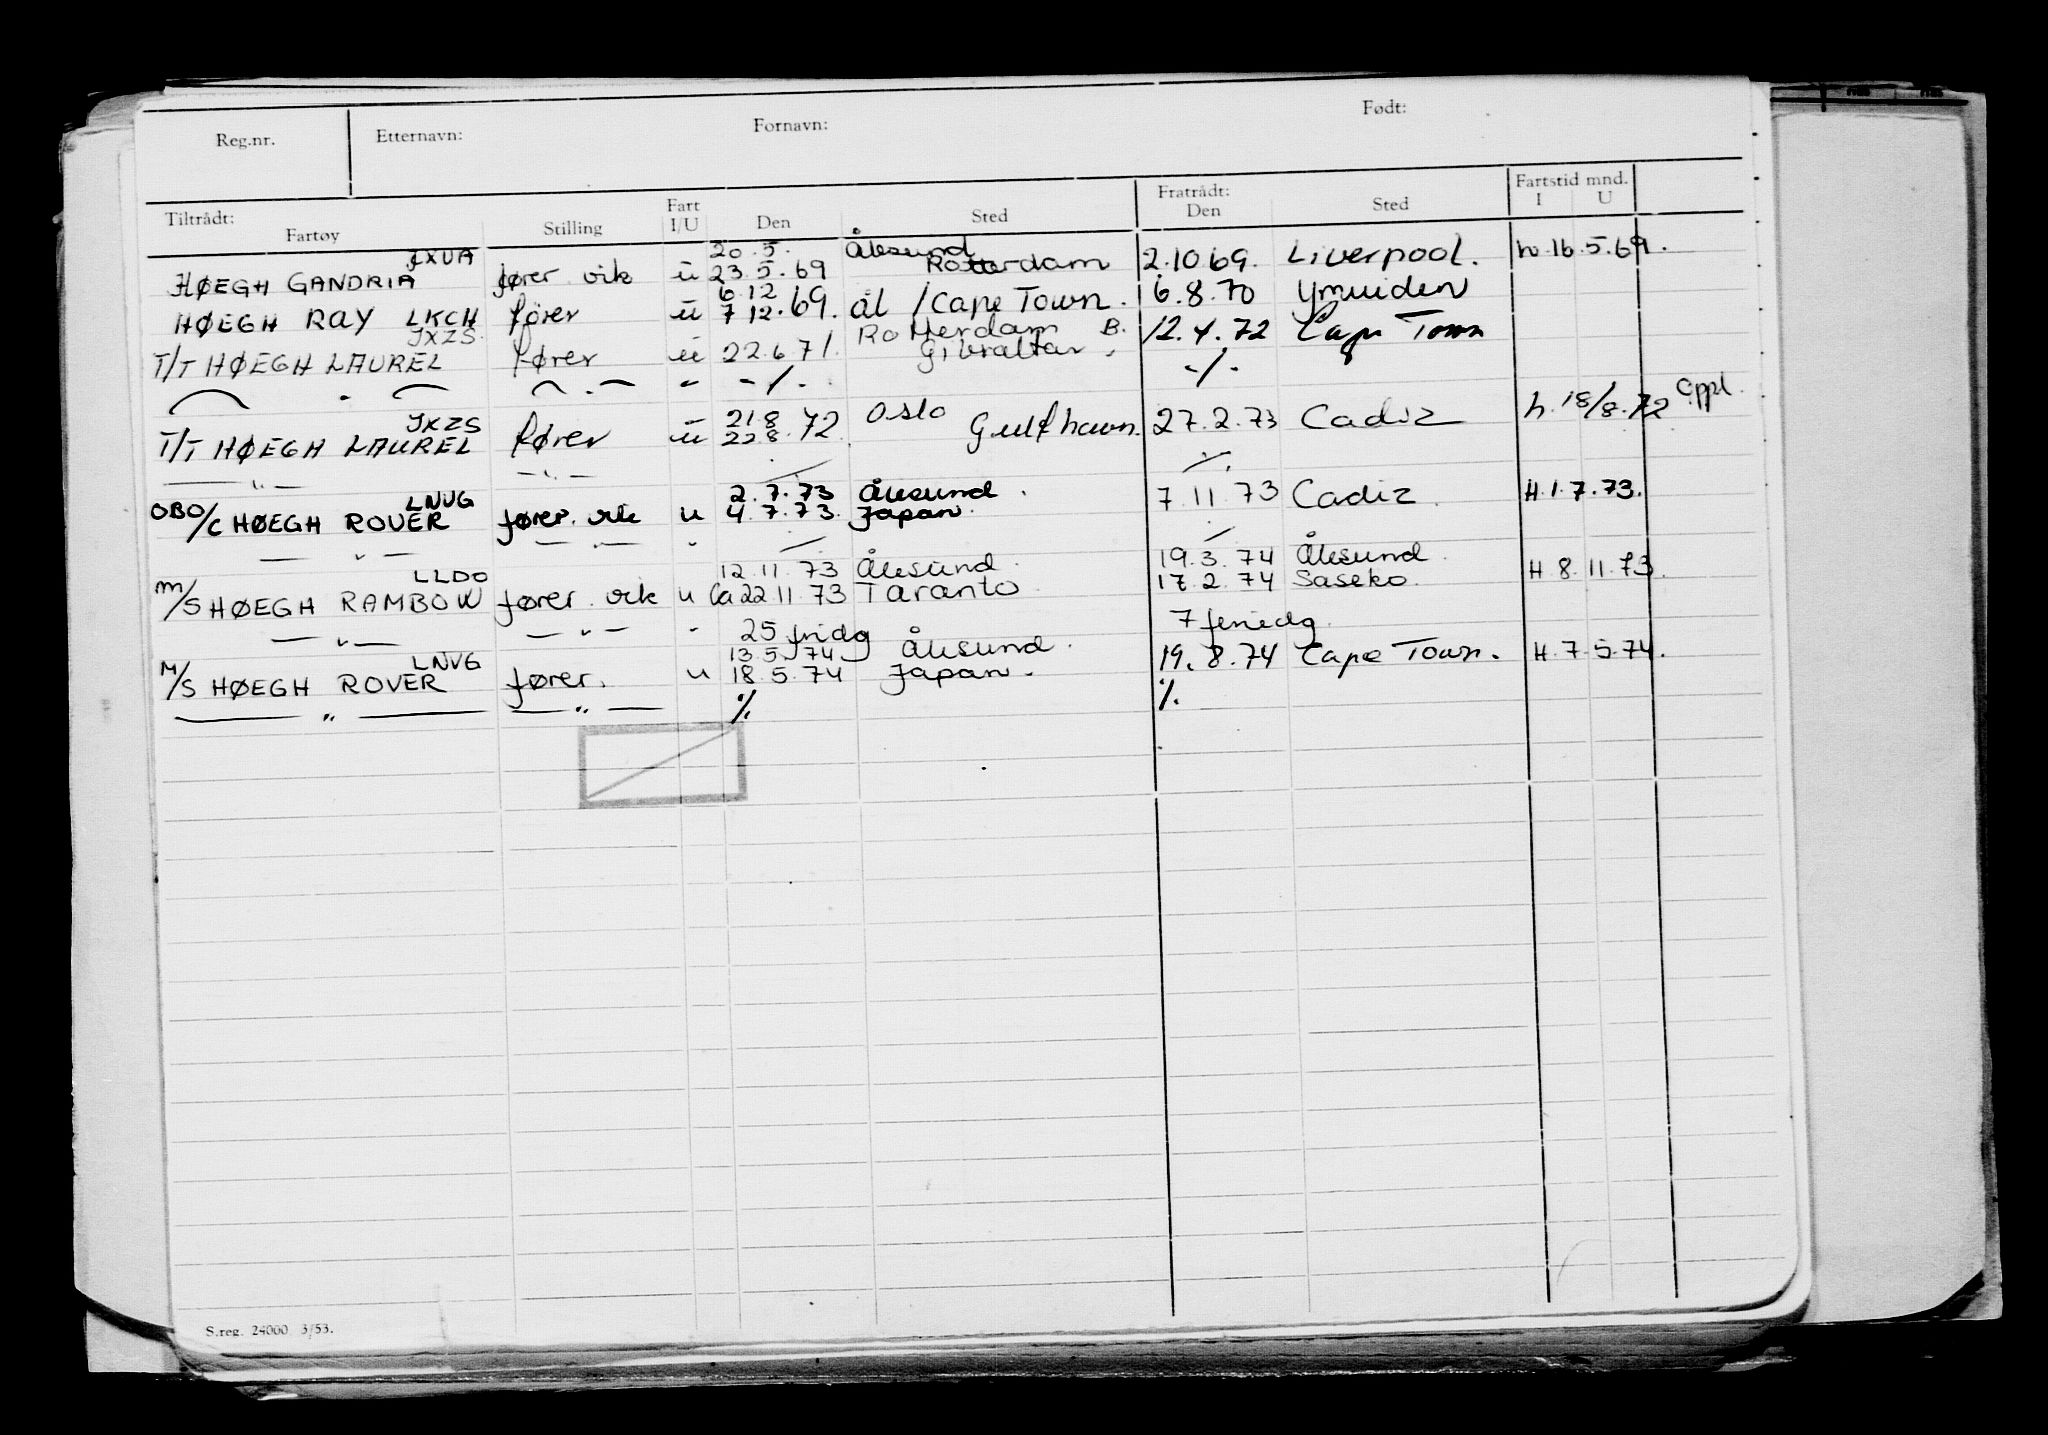 Reg.nr. Etternavn: Fornavn: Født:
Tiltrådt: Fratrådt: Fartstid mnd.
Fartøy Stilling Fart I/U Den Sted Den Sted I U
JXUA 20.5. Ålesund
HØEGH GANDRIA fører vik u 23.5.69 Rotterdam 2.10.69. Liverpool. h.16.5.69.
6.12
HØEGH RAY LKCH fører u 7.12.69. Ål / Cape Town. 6.8.70 Ymuiden
JXZS Rotterdam B.
T/T HØEGH LAUREL fører u 22.6.71. Gibraltar. 12.4.72 Cape Town
— " — — " — " - / - - / -
JXZS 21.8 Oslo
T/T HØEGH LAUREL fører u 22.8.72 Gulfhavn. 27.2.73 Cadiz h.18/8.72 Oppl.
— " — — " —
LNVG 2.7.73 Ålesund.
OBO/C HØEGH ROVER fører. vik u 4.7.73. Japan. 7.11.73 Cadiz. H.1.7.73.
— " — — " — "
LLDO 12.11.73 Ålesund. 19.3.74 Ålesund.
M/S HØEGH RAMBOW fører. vik u Ca 22.11.73 Taranto 17.2.74 Saseko. H.8.11.73.
— " — — " — " 25 fridg 7 feriedg.
LNVG 13.5.74 Ålesund.
M/S HØEGH ROVER fører. u 18.5.74 Japan. 19.8.74 Cape Town. H.7.5.74.
— " — — " — ./. ./.
S.reg. 24000 3/53.